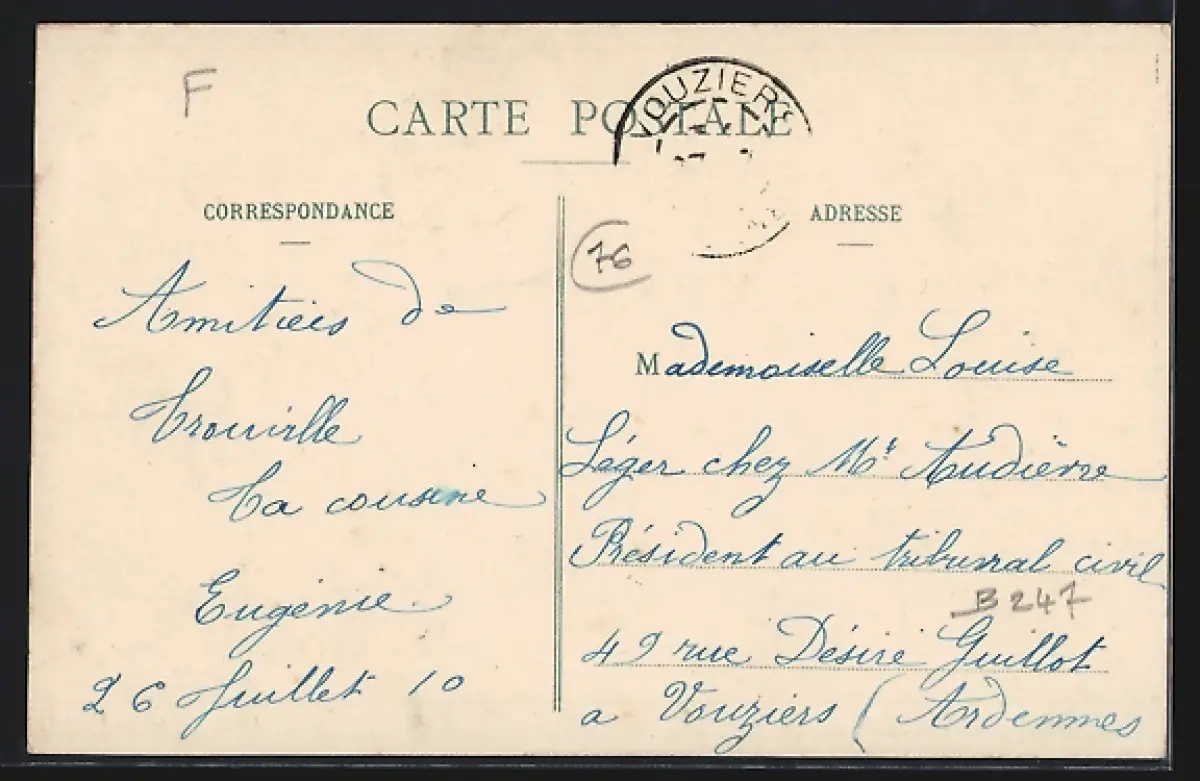 F
CARTE POSTALE
VOUZIERS
CORRESPONDANCE
Amitiées de
Trouville
Ta cousine
Eugénie
26 Juillet 10
ADRESSE
76
Mademoiselle Louise
Léger chez Mr
Président au tribunal civil
B247
49 rue Désiré Guillot
a Vouziers (Ardennes